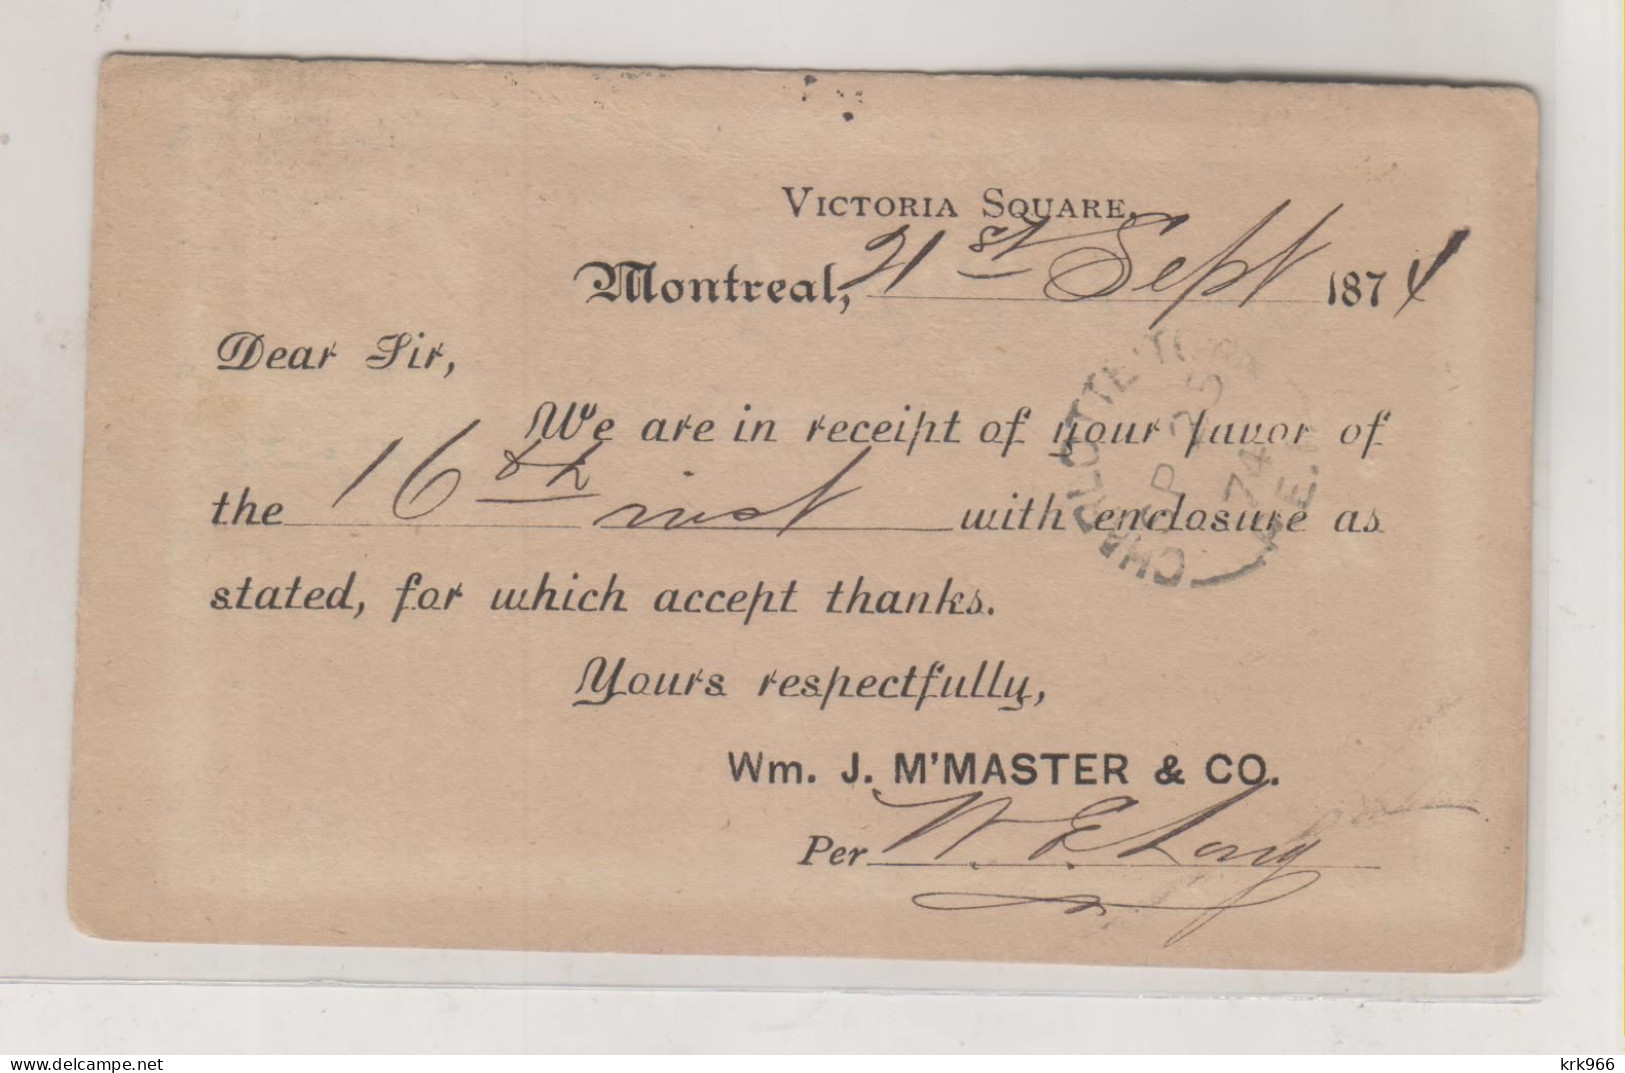 VICTORIA SQUARE,
Montreal, 21st Sept 1874
Dear Sir,
We are in receipt of your favor of
the 16th inst with enclosure as
stated, for which accept thanks.
Yours respectfully,
Wm. J. M'MASTER & CO.
Per W. E. Long
CHARLOTTETOWN
SP 25
74
P.E.I.
www.delcampe.net
krk966